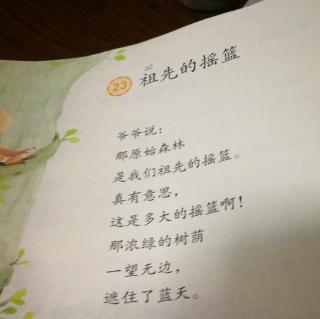 23 祖先的摇篮
爷爷说：
那原始森林
是我们祖先的摇篮。
真有意思，
这是多大的摇篮啊！
那浓绿的树荫
一望无边，
遮住了蓝天。